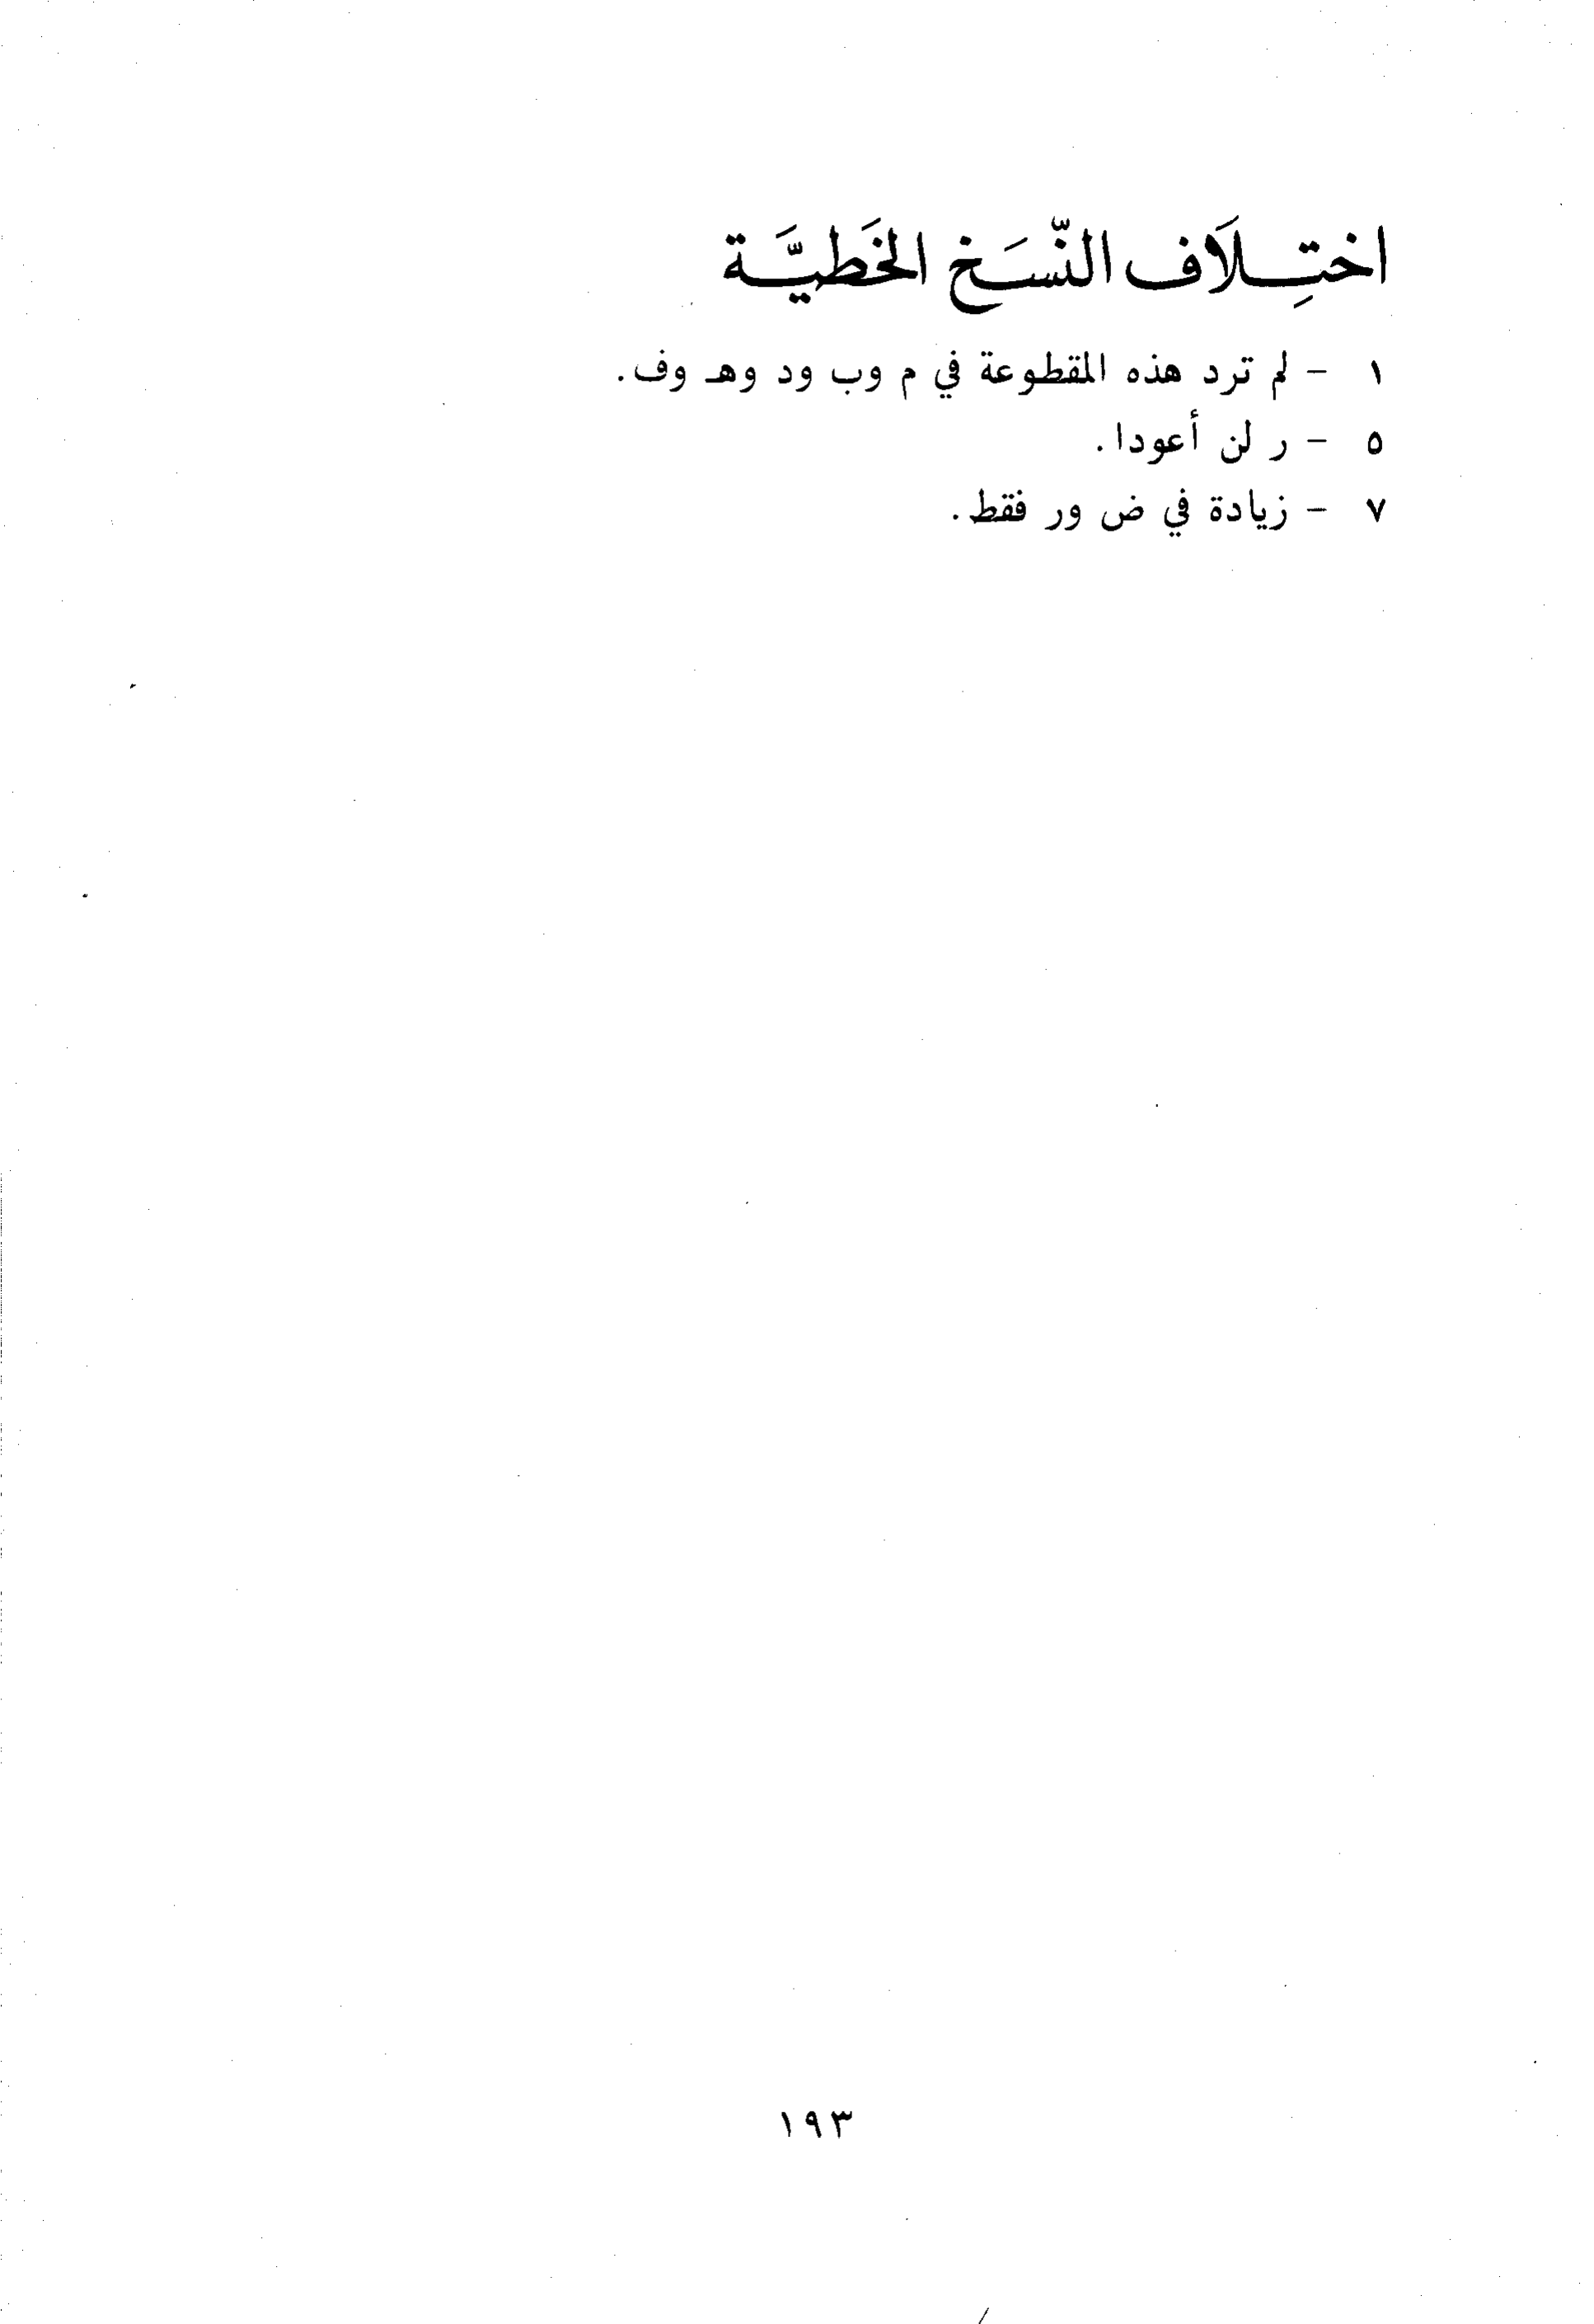 اختِلَاف النّسَخ الخَطيَّة
١ - لم ترد هذه المقطوعة في م وب ود وهـ وف.
٥ - ر لن أعودا.
٧ - زيادة في ض ور فقط.
١٩٣